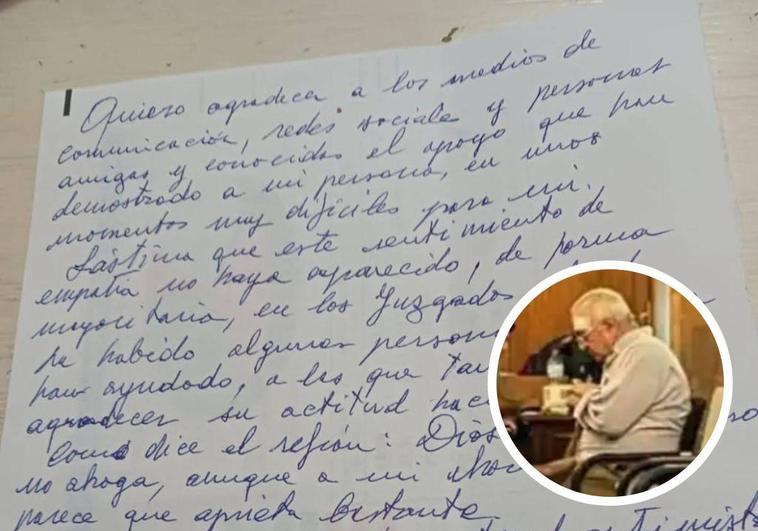 Quiero agradecer a los medios de
comunicación, redes sociales y personas
amigas y conocidas el apoyo que han
demostrado a mi persona, en unos
momentos muy difíciles para mi.
Lástima que este sentimiento de
empatía no haya aparecido, de forma
mayoritaria, en los Juzgados
ha habido algunas person
han ayudado, a las que tam
agradecer su actitud hac
Como dice el refrán: Dios
no ahoga, aunque a mi ahor
parece que aprieta bastante